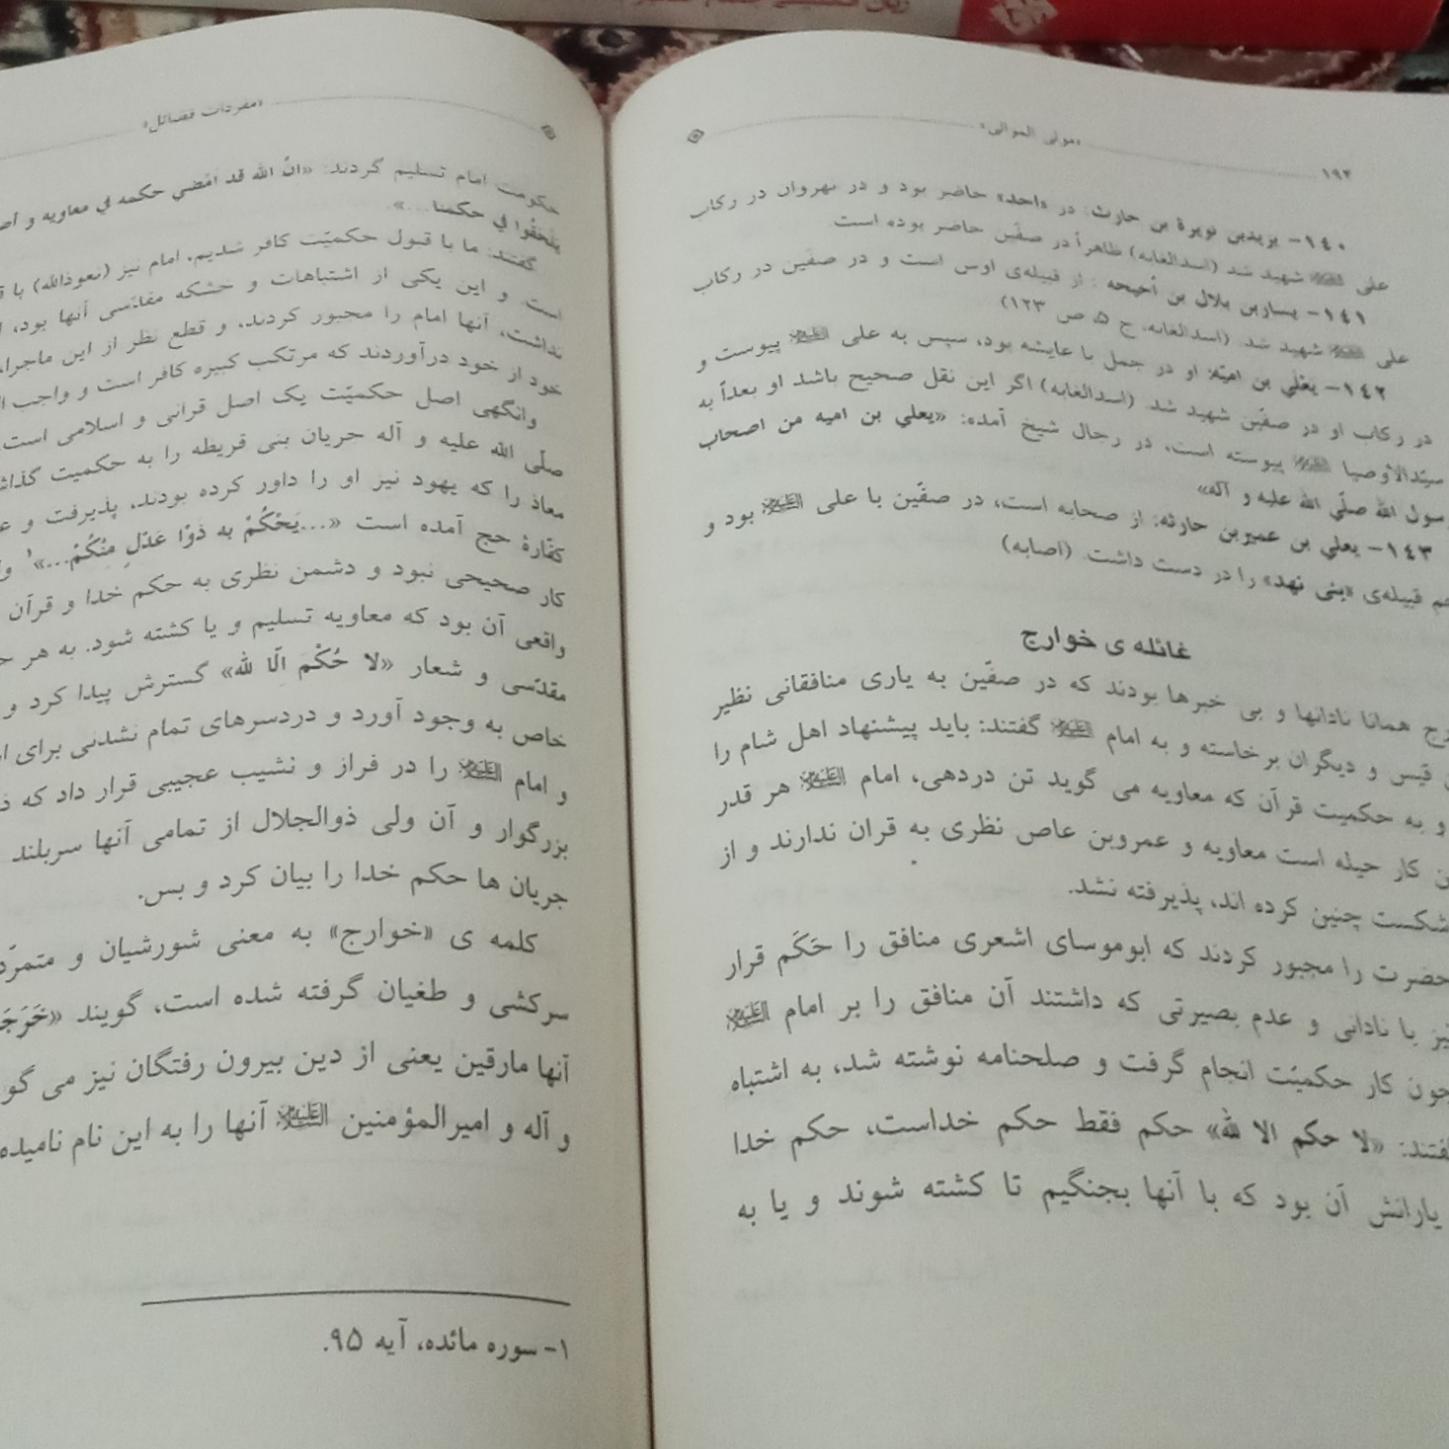 ۱۹۲
«مولی الموالی»
۱٤۰- یزیدبن نویرة بن حارث: در «احد» حاضر بود و در نهروان در رکاب
علی علیه السلام شهید شد (اسدالغابه) ظاهراً در صفّین حاضر بوده است.
۱٤۱- یساربن بلال بن اُحیحه: از قبیله‌ی اوس است و در صفّین در رکاب
علی علیه السلام شهید شد. (اسدالغابه، ج ۵، ص ۱۲۳)
۱٤۲- یعلی بن امیّة: او در جمل با عایشه بود، سپس به علی علیه السلام پیوست و
در رکاب او در صفّین شهید شد. (اسدالغابه) اگر این نقل صحیح باشد او بعداً به
سیّدالاوصیا علیه السلام پیوسته است، در رجال شیخ آمده: «یعلی بن امیه من اصحاب
سول الله صلّی الله علیه و آله»
۱٤۳- یعلی بن عمیربن حارثه: از صحابه است، در صفّین با علی علیه السلام بود و
قبیله‌ی «بنی نهد» را در دست داشت. (اصابه)
غائله ی خوارج
همانا نادانها و بی خبرها بودند که در صفّین به یاری منافقانی نظیر
قیس و دیگران برخاسته و به امام علیه السلام گفتند: باید پیشنهاد اهل شام را
و به حکمیت قرآن که معاویه می گوید تن دردهی، امام علیه السلام هر قدر
کار حیله است معاویه و عمروبن عاص نظری به قران ندارند و از
شکست چنین کرده اند، پذیرفته نشد.
حضرت را مجبور کردند که ابوموسای اشعری منافق را حَکَم قرار
با نادانی و عدم بصیرتی که داشتند آن منافق را بر امام علیه السلام
کار حکمیّت انجام گرفت و صلحنامه نوشته شد، به اشتباه
«لا حکم الا لله» حکم فقط حکم خداست، حکم خدا
یارانش آن بود که با آنها بجنگیم تا کشته شوند و یا به
«مفردات فضائل»
حکومت امام تسلیم گردند: «انّ الله قد امضی حکمه في معاویه و
یلحقوا في حکمنا...».
گفتند: ما با قبول حکمیّت کافر شدیم، امام نیز (نعوذبالله) با
است. و این یکی از اشتباهات و خشکه مقدّسی آنها بود،
نداشت، آنها امام را مجبور کردند، و قطع نظر از این ماجرا،
خود از خود درآوردند که مرتکب کبیره کافر است و واجب
وانگهی اصل حکمیّت یک اصل قرانی و اسلامی است.
صلّی الله علیه و آله جریان بنی قریظه را به حکمیت
معاذ را که یهود نیز او را داور کرده بودند، پذیرفت و
کفّارهٔ حج آمده است «...یَحْکُمُ به ذَوْا عَدْلٍ مِنْکُمْ...»۱
کار صحیحی نبود و دشمن نظری به حکم خدا و قرآن
واقعی آن بود که معاویه تسلیم و یا کشته شود. به هر
مقدّسی و شعار «لا حُکْمَ الّا لله» گسترش پیدا کرد و
خاص به وجود آورد و دردسرهای تمام نشدنی برای
و امام علیه السلام را در فراز و نشیب عجیبی قرار داد که
بزرگوار و آن ولی ذوالجلال از تمامی آنها سربلند
جریان ها حکم خدا را بیان کرد و بس.
کلمه ی «خوارج» به معنی شورشیان و
سرکشی و طغیان گرفته شده است، گویند
آنها مارقین یعنی از دین بیرون رفتگان نیز می
و آله و امیرالمؤمنین علیه السلام آنها را به این نام نامیده
۱- سوره مائده، آیه ۹۵.